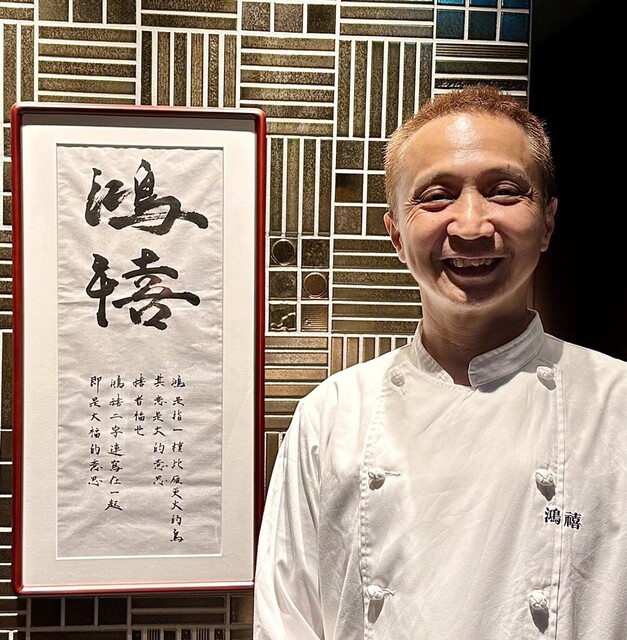 鴻禧
鴻是指一種比雁更大的鳥
其意是大的意思
禧者福也
鴻禧二字連寫在一起
即是大福的意思
鴻禧